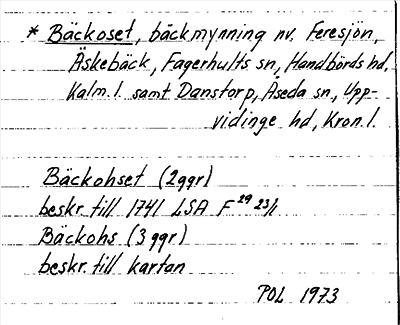 * Bäckoset, bäckmynning nv. Feresjön,
Äskebäck, Fagerhults sn, Handbörds hd,
Kalm. l. samt Danstorp, Åseda sn, Upp-
vidinge hd, Kron. l.
Bäckohset (2 ggr)
beskr. till 1741 LSA F 29 23/1
Bäckohs (3 ggr)
beskr. till kartan
POL 1973